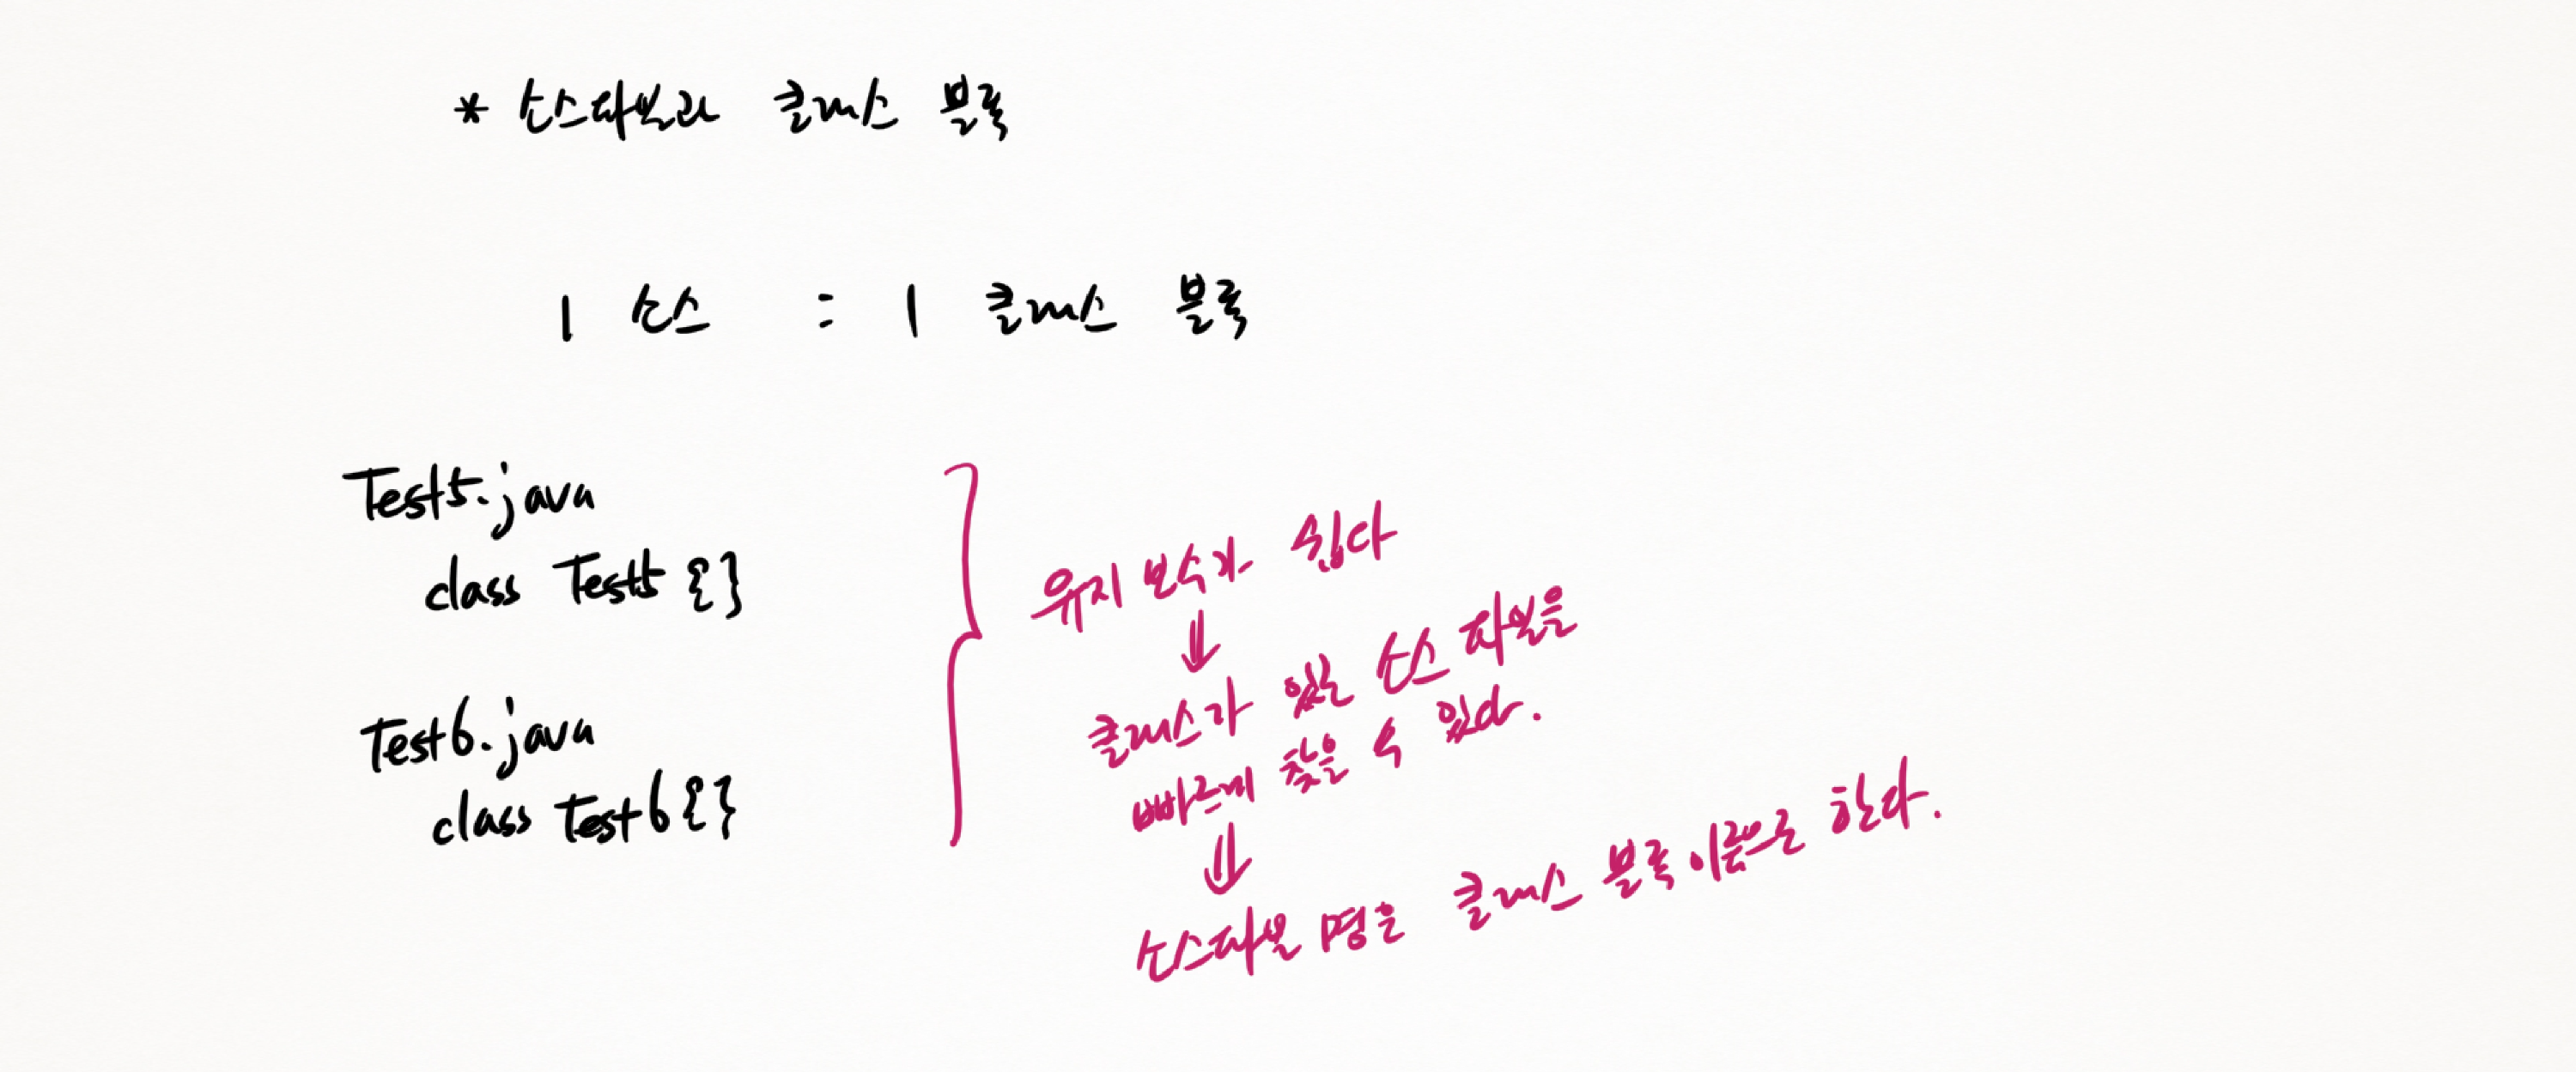 * 소스파일과 클래스 블록
1 소스 : 1 클래스 블록
Test5.java
class Test5 {}
Test6.java
class Test6 {}
유지 보수가 쉽다
⇓
클래스가 있는 소스 파일을
빠르게 찾을 수 있다.
⇓
소스파일 명은 클래스 블록 이름으로 한다.